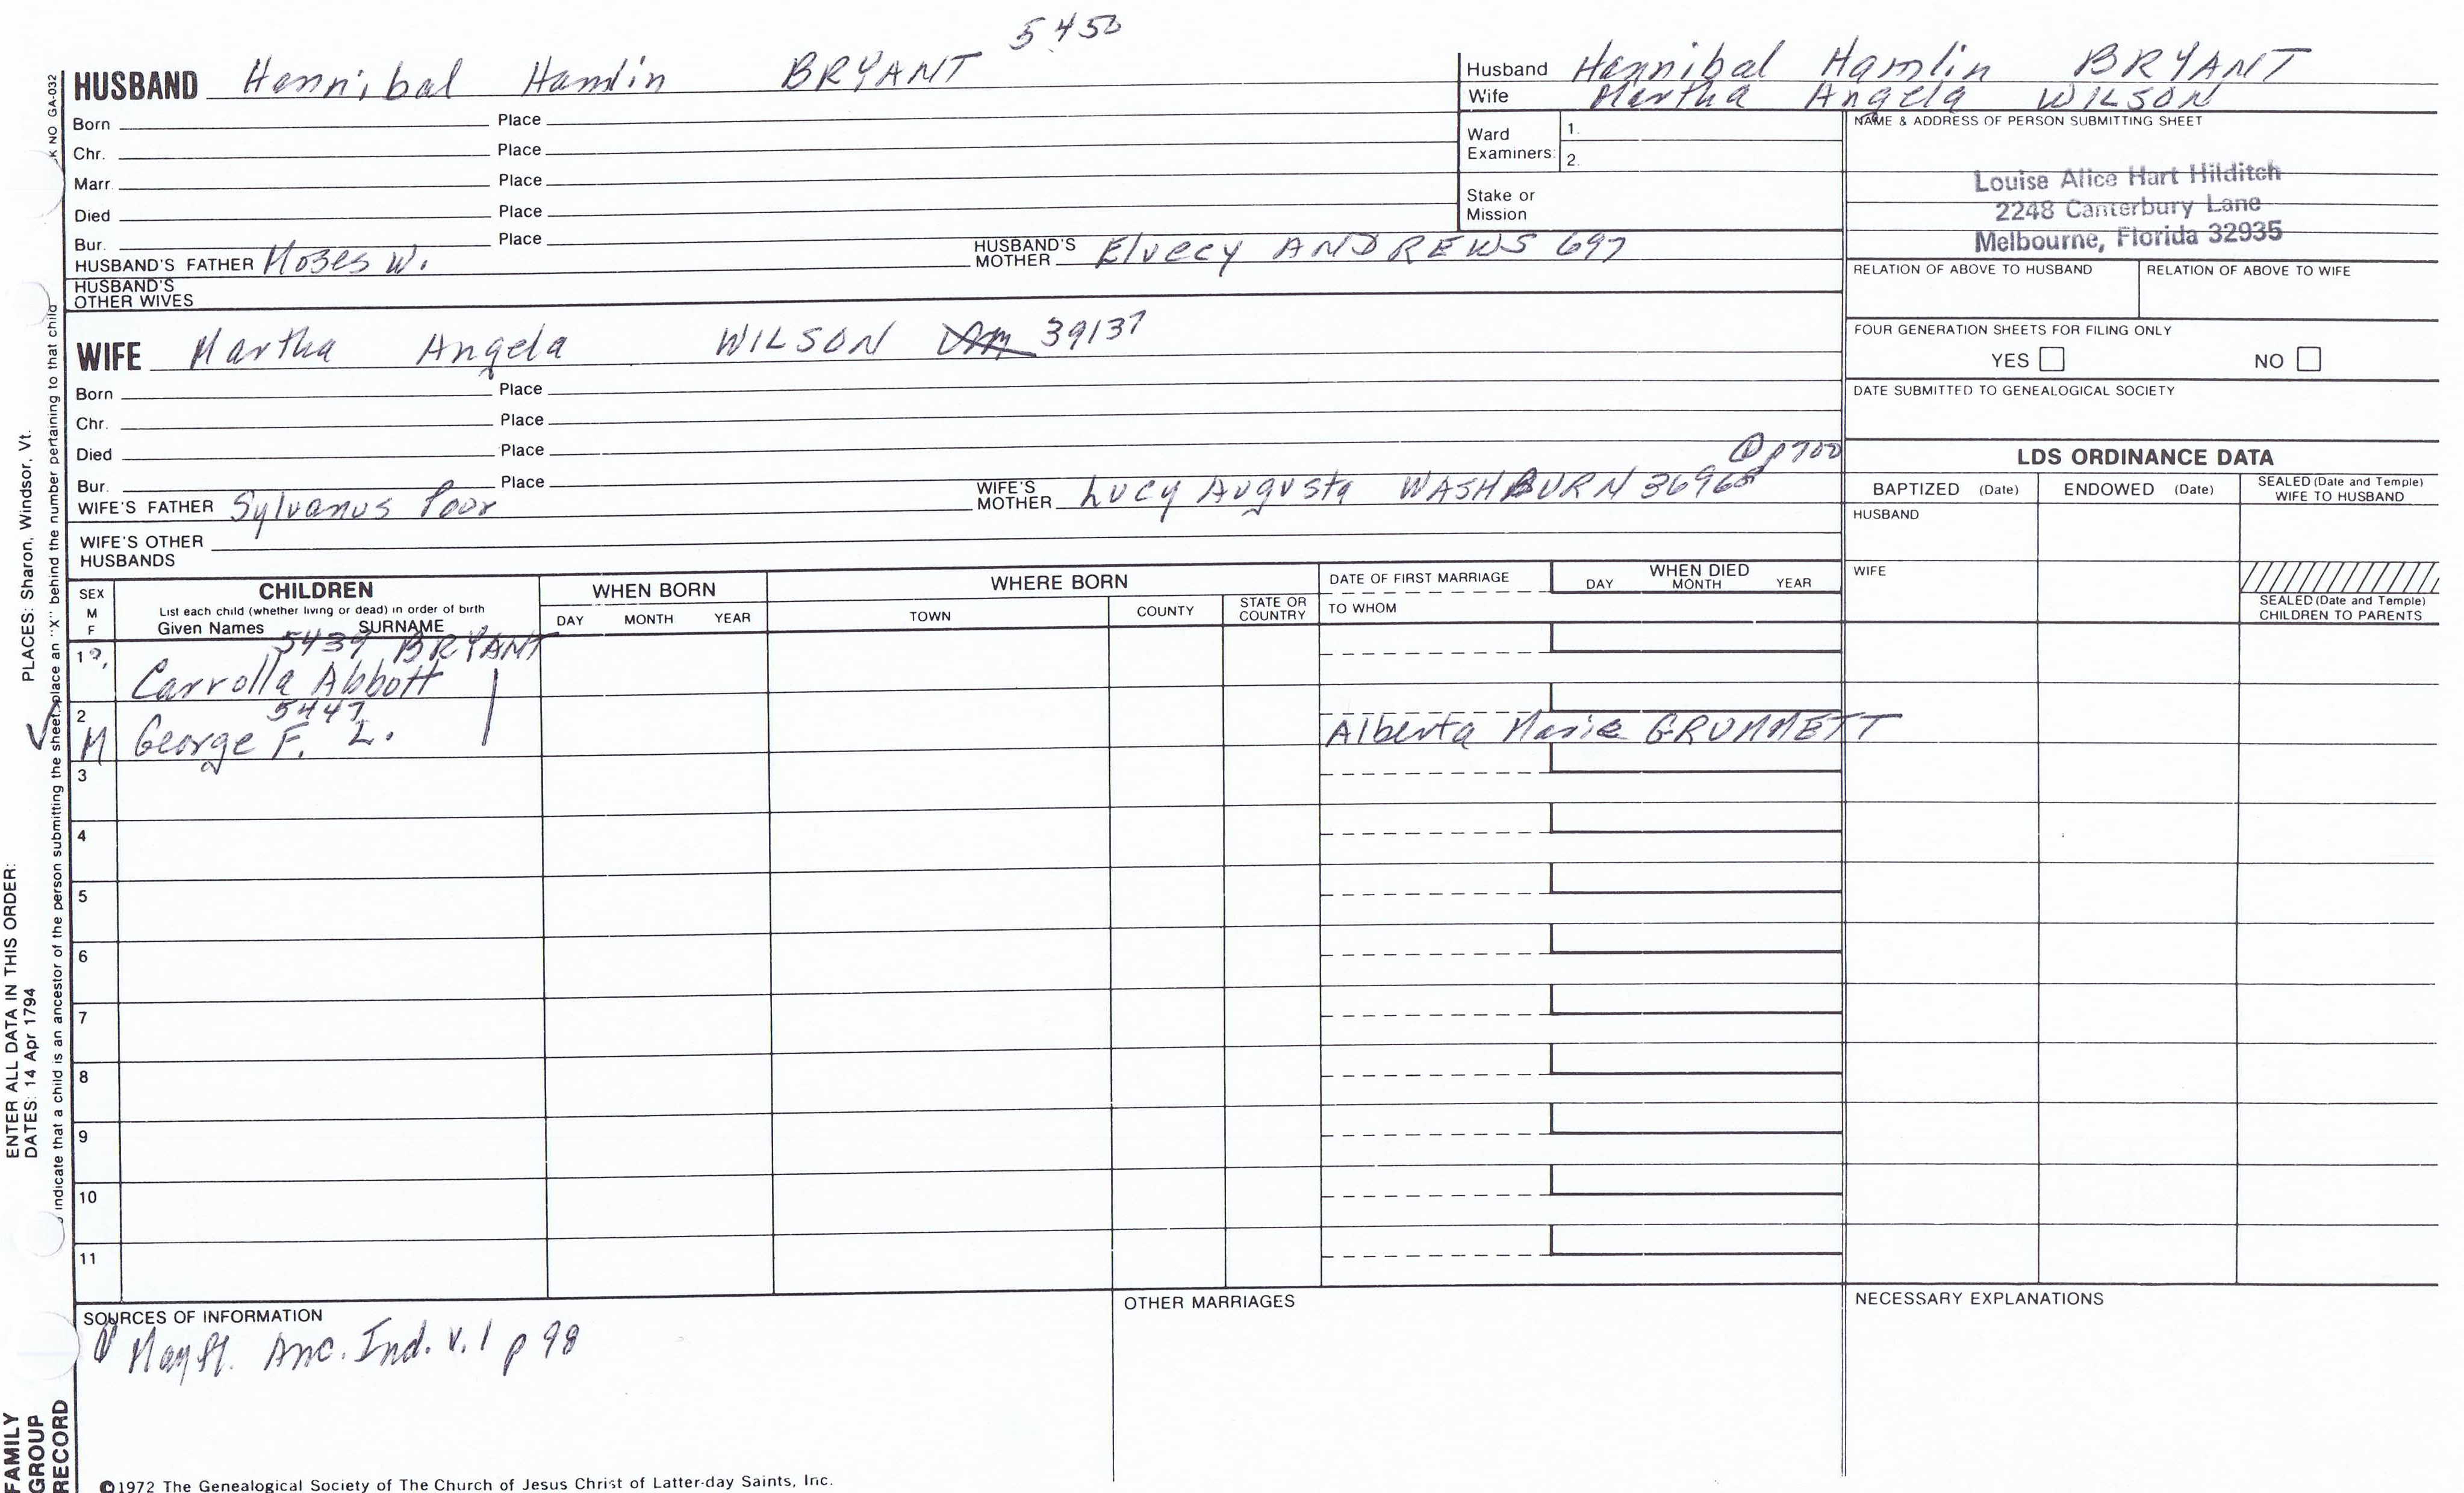 5450
HUSBAND Hannibal Hamlin BRYANT
Born Place
Chr. Place
Marr. Place
Died Place
Bur. Place
HUSBAND'S FATHER Moses W. HUSBAND'S MOTHER Elvecy ANDREWS 697
HUSBAND'S OTHER WIVES
Husband Hannibal Hamlin BRYANT
Wife Martha Angela WILSON
Ward Examiners: 1.
2.
Stake or Mission
NAME & ADDRESS OF PERSON SUBMITTING SHEET
Louise Alice Hart Hilditch
2248 Canterbury Lane
Melbourne, Florida 32935
RELATION OF ABOVE TO HUSBAND RELATION OF ABOVE TO WIFE
FOUR GENERATION SHEETS FOR FILING ONLY
YES NO
DATE SUBMITTED TO GENEALOGICAL SOCIETY
WIFE Martha Angela WILSON 39137
Born Place
Chr. Place
Died Place
Bur. Place
@ p700
WIFE'S FATHER Sylvanus Poor WIFE'S MOTHER Lucy Augusta WASHBURN 36968
WIFE'S OTHER HUSBANDS
LDS ORDINANCE DATA
BAPTIZED (Date) ENDOWED (Date) SEALED (Date and Temple) WIFE TO HUSBAND
HUSBAND
WIFE
SEALED (Date and Temple) CHILDREN TO PARENTS
SEX M F
CHILDREN
List each child (whether living or dead) in order of birth
Given Names SURNAME
WHEN BORN
DAY MONTH YEAR
WHERE BORN
TOWN COUNTY STATE OR COUNTRY
DATE OF FIRST MARRIAGE
TO WHOM
WHEN DIED
DAY MONTH YEAR
1 5439 BRYANT
Carrolla Abbott
2 5447
M George F. L. Alberta Marie GRUMMETT
3
4
5
6
7
8
9
10
11
SOURCES OF INFORMATION
Mayfl. Anc. Ind. v. 1 p 98
OTHER MARRIAGES
NECESSARY EXPLANATIONS
©1972 The Genealogical Society of The Church of Jesus Christ of Latter-day Saints, Inc.
FAMILY GROUP RECORD
ENTER ALL DATA IN THIS ORDER:
DATES: 14 Apr 1794
PLACES: Sharon, Windsor, Vt.
indicate that a child is an ancestor of the person submitting the sheet, place an "X" behind the number pertaining to that child
K NO GA-032